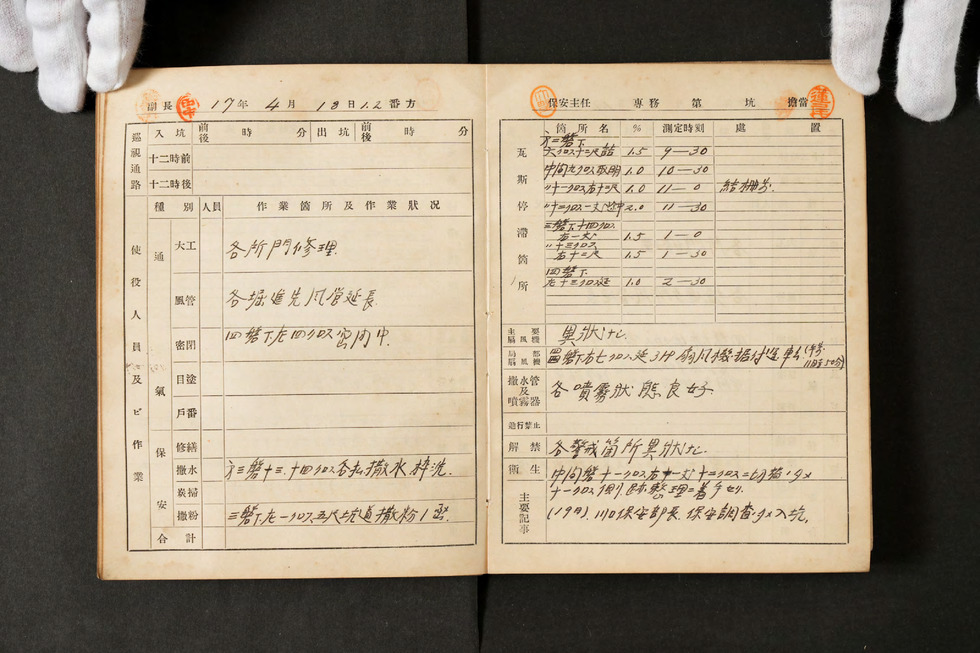 副長 17年 4月 18日 1.2番方
巡視通路
入坑 前後 時 分 出坑 前後 時 分
十二時前
十二時後
使役人員及ビ作業
種別 人員 作業箇所及作業狀況
通氣
大工 各所門修理.
風管 各掘進先風管延長
密閉 四磐下左四クロス密閉中.
目塗
戶番
保安
修繕
撒水 三磐十三.十四クロス各払撒水
炭掃
撒粉 三磐下左一クロス五尺坑道撒粉
合計
保安主任 專務 第 坑 擔當
瓦斯停滯箇所
箇所名 % 測定時刻 處置
三磐下
1.5 9—30
中間九クロス 1.0 10—30
〃十一クロス右十三尺 1.0 11—0
〃十三クロス 2.0 11—30
三磐下十四クロス
1.5 1—0
〃十三クロス
右十三尺 1.5 1—30
四磐下
左十三クロス延 1.0 2—30
主要扇風機 異狀ナシ
局部扇風機 四磐下右七クロス延3HP扇風機据付運転
撒水管及噴霧器 各噴霧狀態良好
進行禁止
解禁 各警戒箇所異狀ナシ.
衛生
主要記事
中間磐十一クロス右
十一クロス側 整理ニ着手セリ
(19月).川口保安部長.保安調査 入坑.